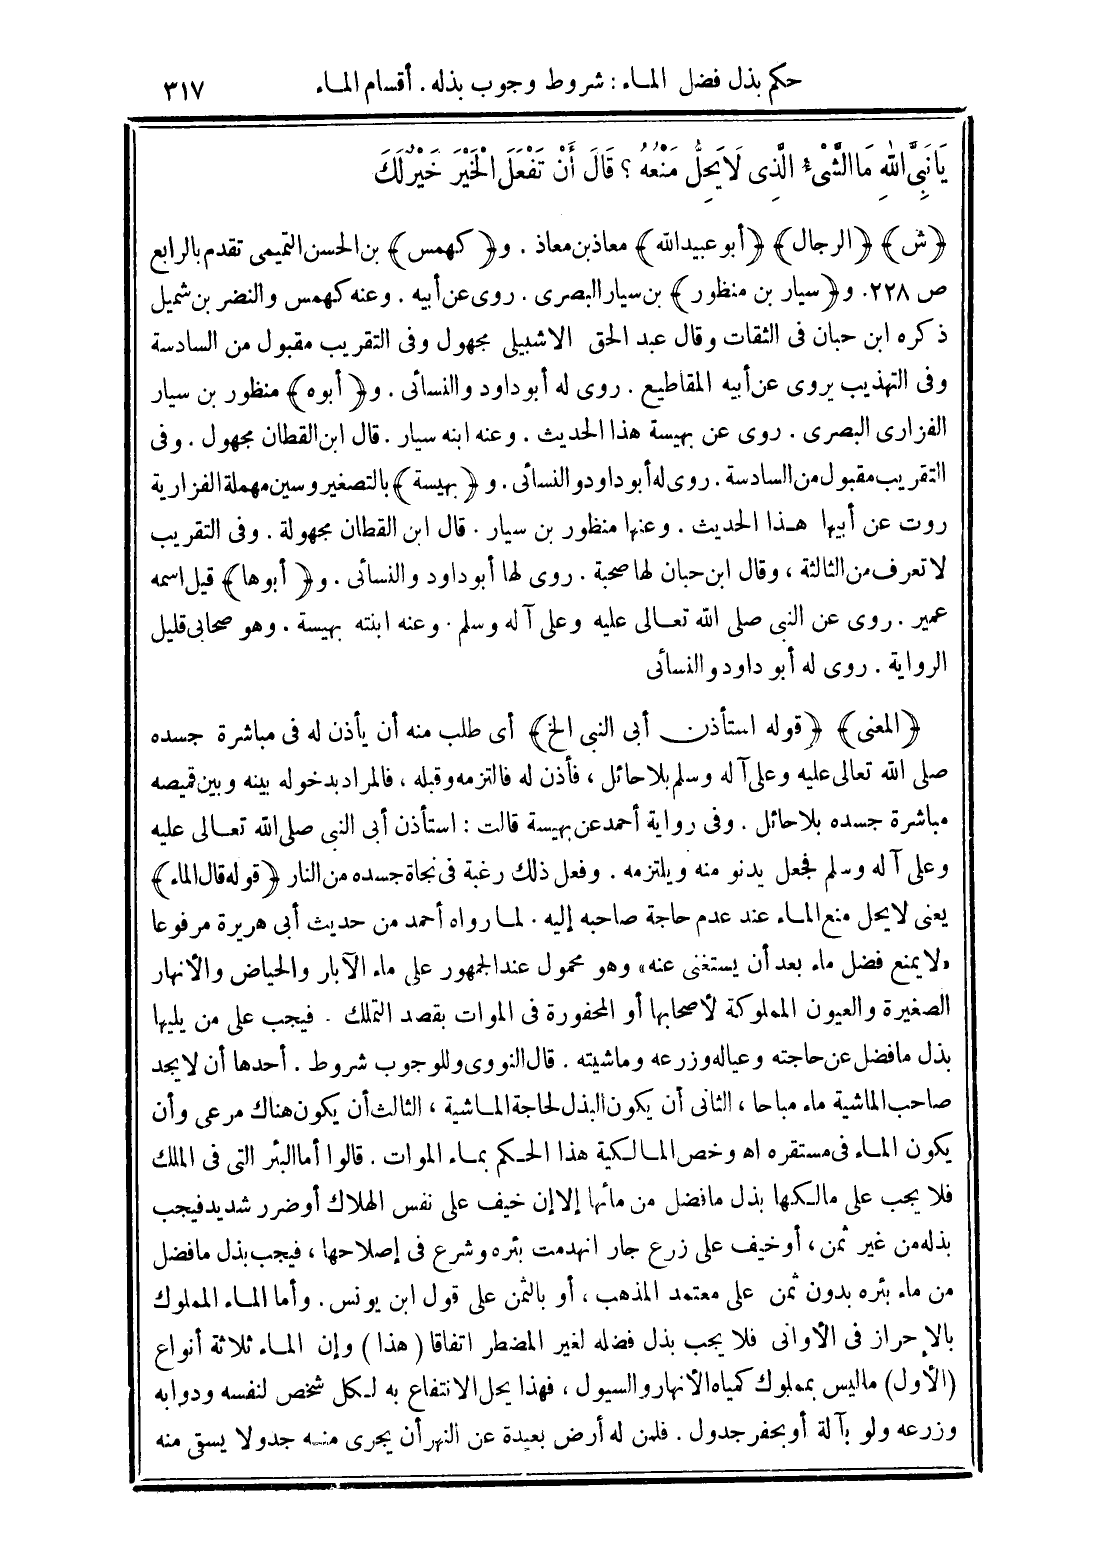 حكم بذل فضل الماء : شروط وجوب بذله . أقسام الماء ٣١٧
يَا نَبِيَّ اللهِ مَا الشَّيْءُ الَّذِي لَا يَحِلُّ مَنْعُهُ ؟ قَالَ أَنْ تَفْعَلَ الْخَيْرَ خَيْرٌ لَكَ
﴿ش﴾ ﴿الرجال﴾ ﴿أبو عبيد الله﴾ معاذ بن معاذ . و﴿كهمس﴾ بن الحسن التميمى تقدم بالرابع
ص ٢٢٨. و﴿سيار بن منظور﴾ بن سيار البصرى . روى عن أبيه . وعنه كهمس والنضر بن شميل
ذكره ابن حبان فى الثقات وقال عبد الحق الاشبيلى مجهول وفى التقريب مقبول من السادسة
وفى التهذيب يروى عن أبيه المقاطيع . روى له أبو داود والنسائى . و﴿أبوه﴾ منظور بن سيار
الفزارى البصرى . روى عن بهيسة هذا الحديث . وعنه ابنه سيار . قال ابن القطان مجهول . وفى
التقريب مقبول من السادسة . روى له أبو داود والنسائى . و﴿بهيسة﴾ بالتصغير وسين مهملة الفزارية
روت عن أبيها هذا الحديث . وعنها منظور بن سيار . قال ابن القطان مجهولة . وفى التقريب
لا تعرف من الثالثة ، وقال ابن حبان لها صحبة . روى لها أبو داود والنسائى . و﴿أبوها﴾ قيل اسمه
عمير . روى عن النبى صلى الله تعالى عليه وعلى آله وسلم . وعنه ابنته بهيسة . وهو صحابى قليل
الرواية . روى له أبو داود والنسائى
﴿المعنى﴾ ﴿قوله استأذن أبى النبى الخ﴾ أى طلب منه أن يأذن له فى مباشرة جسده
صلى الله تعالى عليه وعلى آله وسلم بلا حائل ، فأذن له فالتزمه وقبله ، فالمراد بدخوله بينه وبين قميصه
مباشرة جسده بلا حائل . وفى رواية أحمد عن بهيسة قالت : استأذن أبى النبى صلى الله تعالى عليه
وعلى آله وسلم فجعل يدنو منه ويلتزمه . وفعل ذلك رغبة فى نجاة جسده من النار ﴿قوله قال الماء﴾
يعنى لا يحل منع الماء عند عدم حاجة صاحبه إليه . لما رواه أحمد من حديث أبى هريرة مرفوعا
«لا يمنع فضل ماء بعد أن يستغنى عنه» وهو محمول عند الجمهور على ماء الآبار والحياض والأنهار
الصغيرة والعيون المملوكة لأصحابها أو المحفورة فى الموات بقصد التملك . فيجب على من يليها
بذل ما فضل عن حاجته وعياله وزرعه وماشيته . قال النووى وللوجوب شروط . أحدها أن لا يجد
صاحب الماشية ماء مباحا ، الثانى أن يكون البذل لحاجة الماشية ، الثالث أن يكون هناك مرعى وأن
يكون الماء فى مستقره اه وخص المالكية هذا الحكم بماء الموات . قالوا أما البئر التى فى الملك
فلا يجب على مالكها بذل ما فضل من مائها إلا إن خيف على نفس الهلاك أو ضرر شديد فيجب
بذله من غير ثمن ، أو خيف على زرع جار انهدمت بئره وشرع فى إصلاحها ، فيجب بذل ما فضل
من ماء بئره بدون ثمن على معتمد المذهب ، أو بالثمن على قول ابن يونس . وأما الماء المملوك
بالإحراز فى الأوانى فلا يجب بذل فضله لغير المضطر اتفاقا (هذا) وإن الماء ثلاثة أنواع
(الأول) ما ليس بمملوك كمياه الأنهار والسيول ، فهذا يحل الانتفاع به لكل شخص لنفسه ودوابه
وزرعه ولو بآلة أو بحفر جدول . فلمن له أرض بعيدة عن النهر أن يجرى منه جدولا يسقى منه